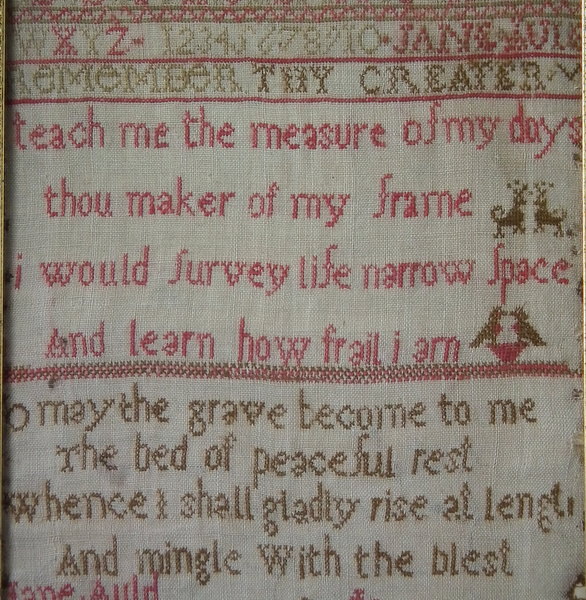 W X Y Z - 12345678910 - JANE AULD
REMEMBER THY CREATER
teach me the measure of my days
thou maker of my frame
i would survey life narrow space
And learn how frail i am
o may the grave become to me
The bed of peaceful rest
whence i shall gladly rise at length
And mingle with the blest
Jane Auld